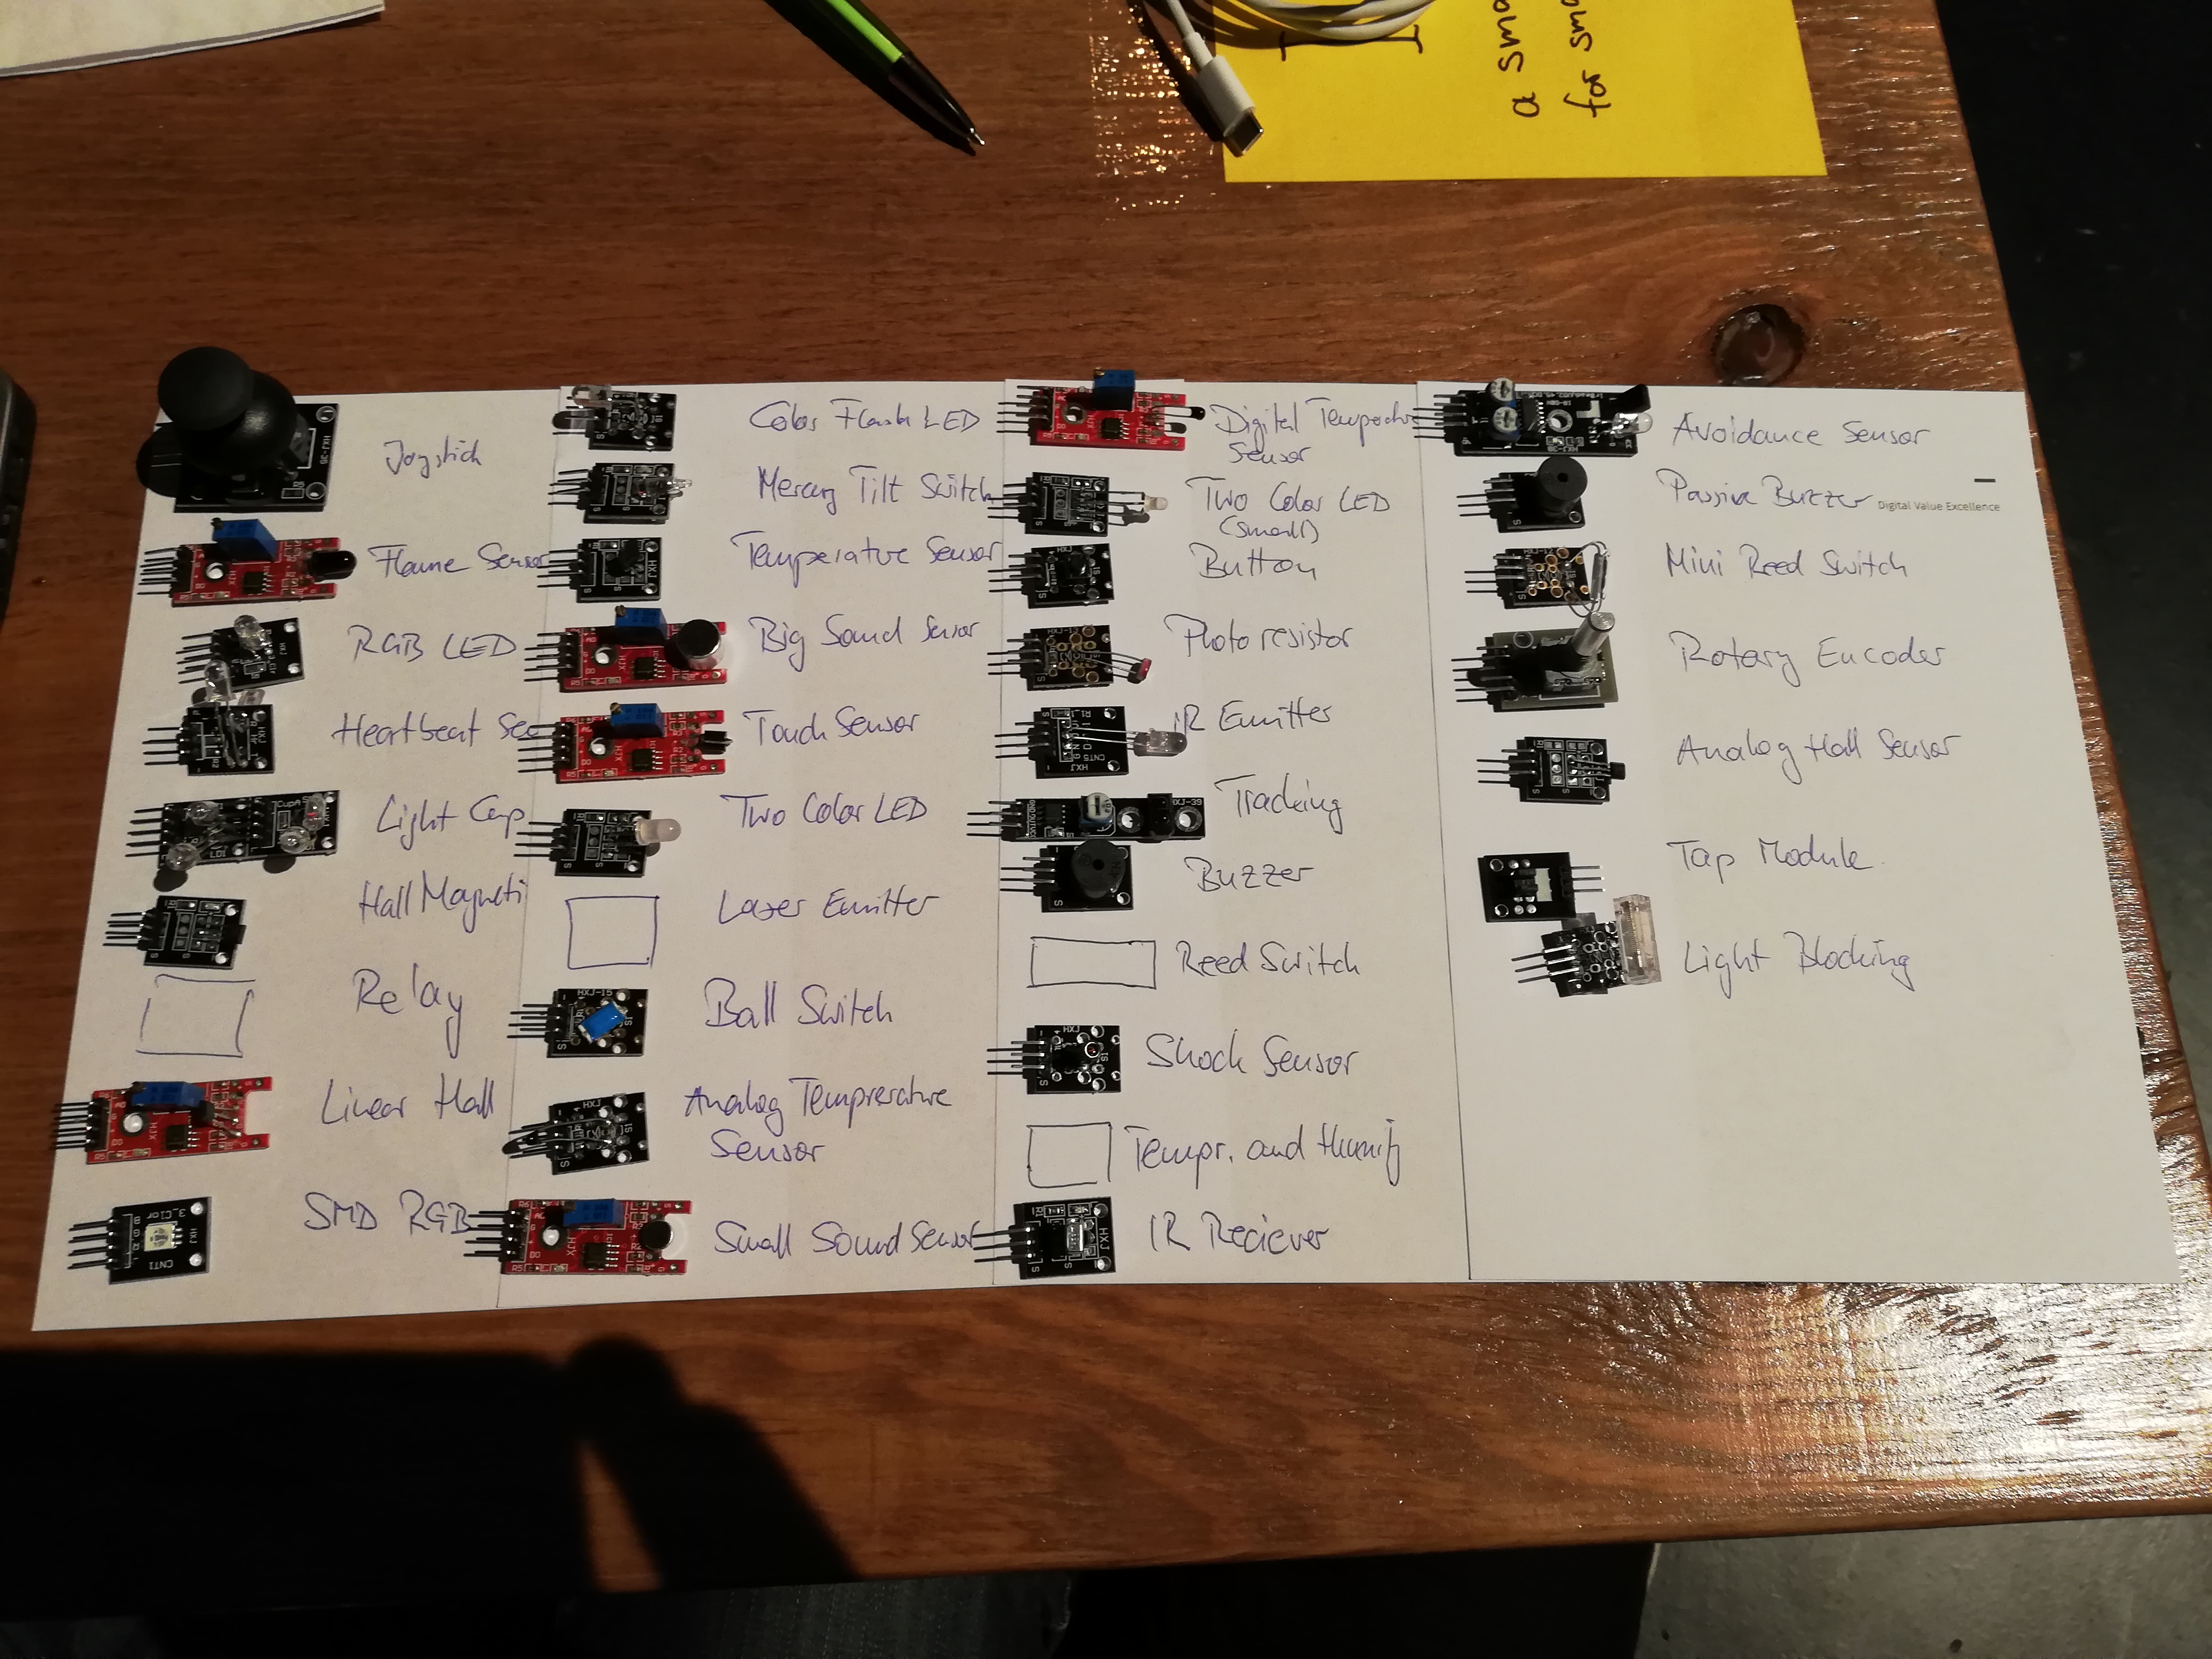 a sma
for sma
Joystick
Flame Sensor
RGB LED
Heartbeat Sen
Light Cup
Hall Magneti
Relay
Linear Hall
SMD RGB
Color Flash LED
Mercury Tilt Switch
Temperature Sensor
Big Sound Sensor
Touch Sensor
Two Color LED
Laser Emitter
Ball Switch
Analog Temprerature
Sensor
Small Sound Sensor
Digital Temperatur
Sensor
Two Color LED
(small)
Button
Photo resistor
IR Emitter
Tracking
Buzzer
Reed Switch
Shock Sensor
Tempr. and Humity
IR Reciever
Avoidance Sensor
Passive Buzzer
Digital Value Excellence
Mini Reed Switch
Rotary Encoder
Analog Hall Sensor
Tap Module
Light Blocking
HXJ-15
HXJ
CNT1
CNT5
HXJ-39